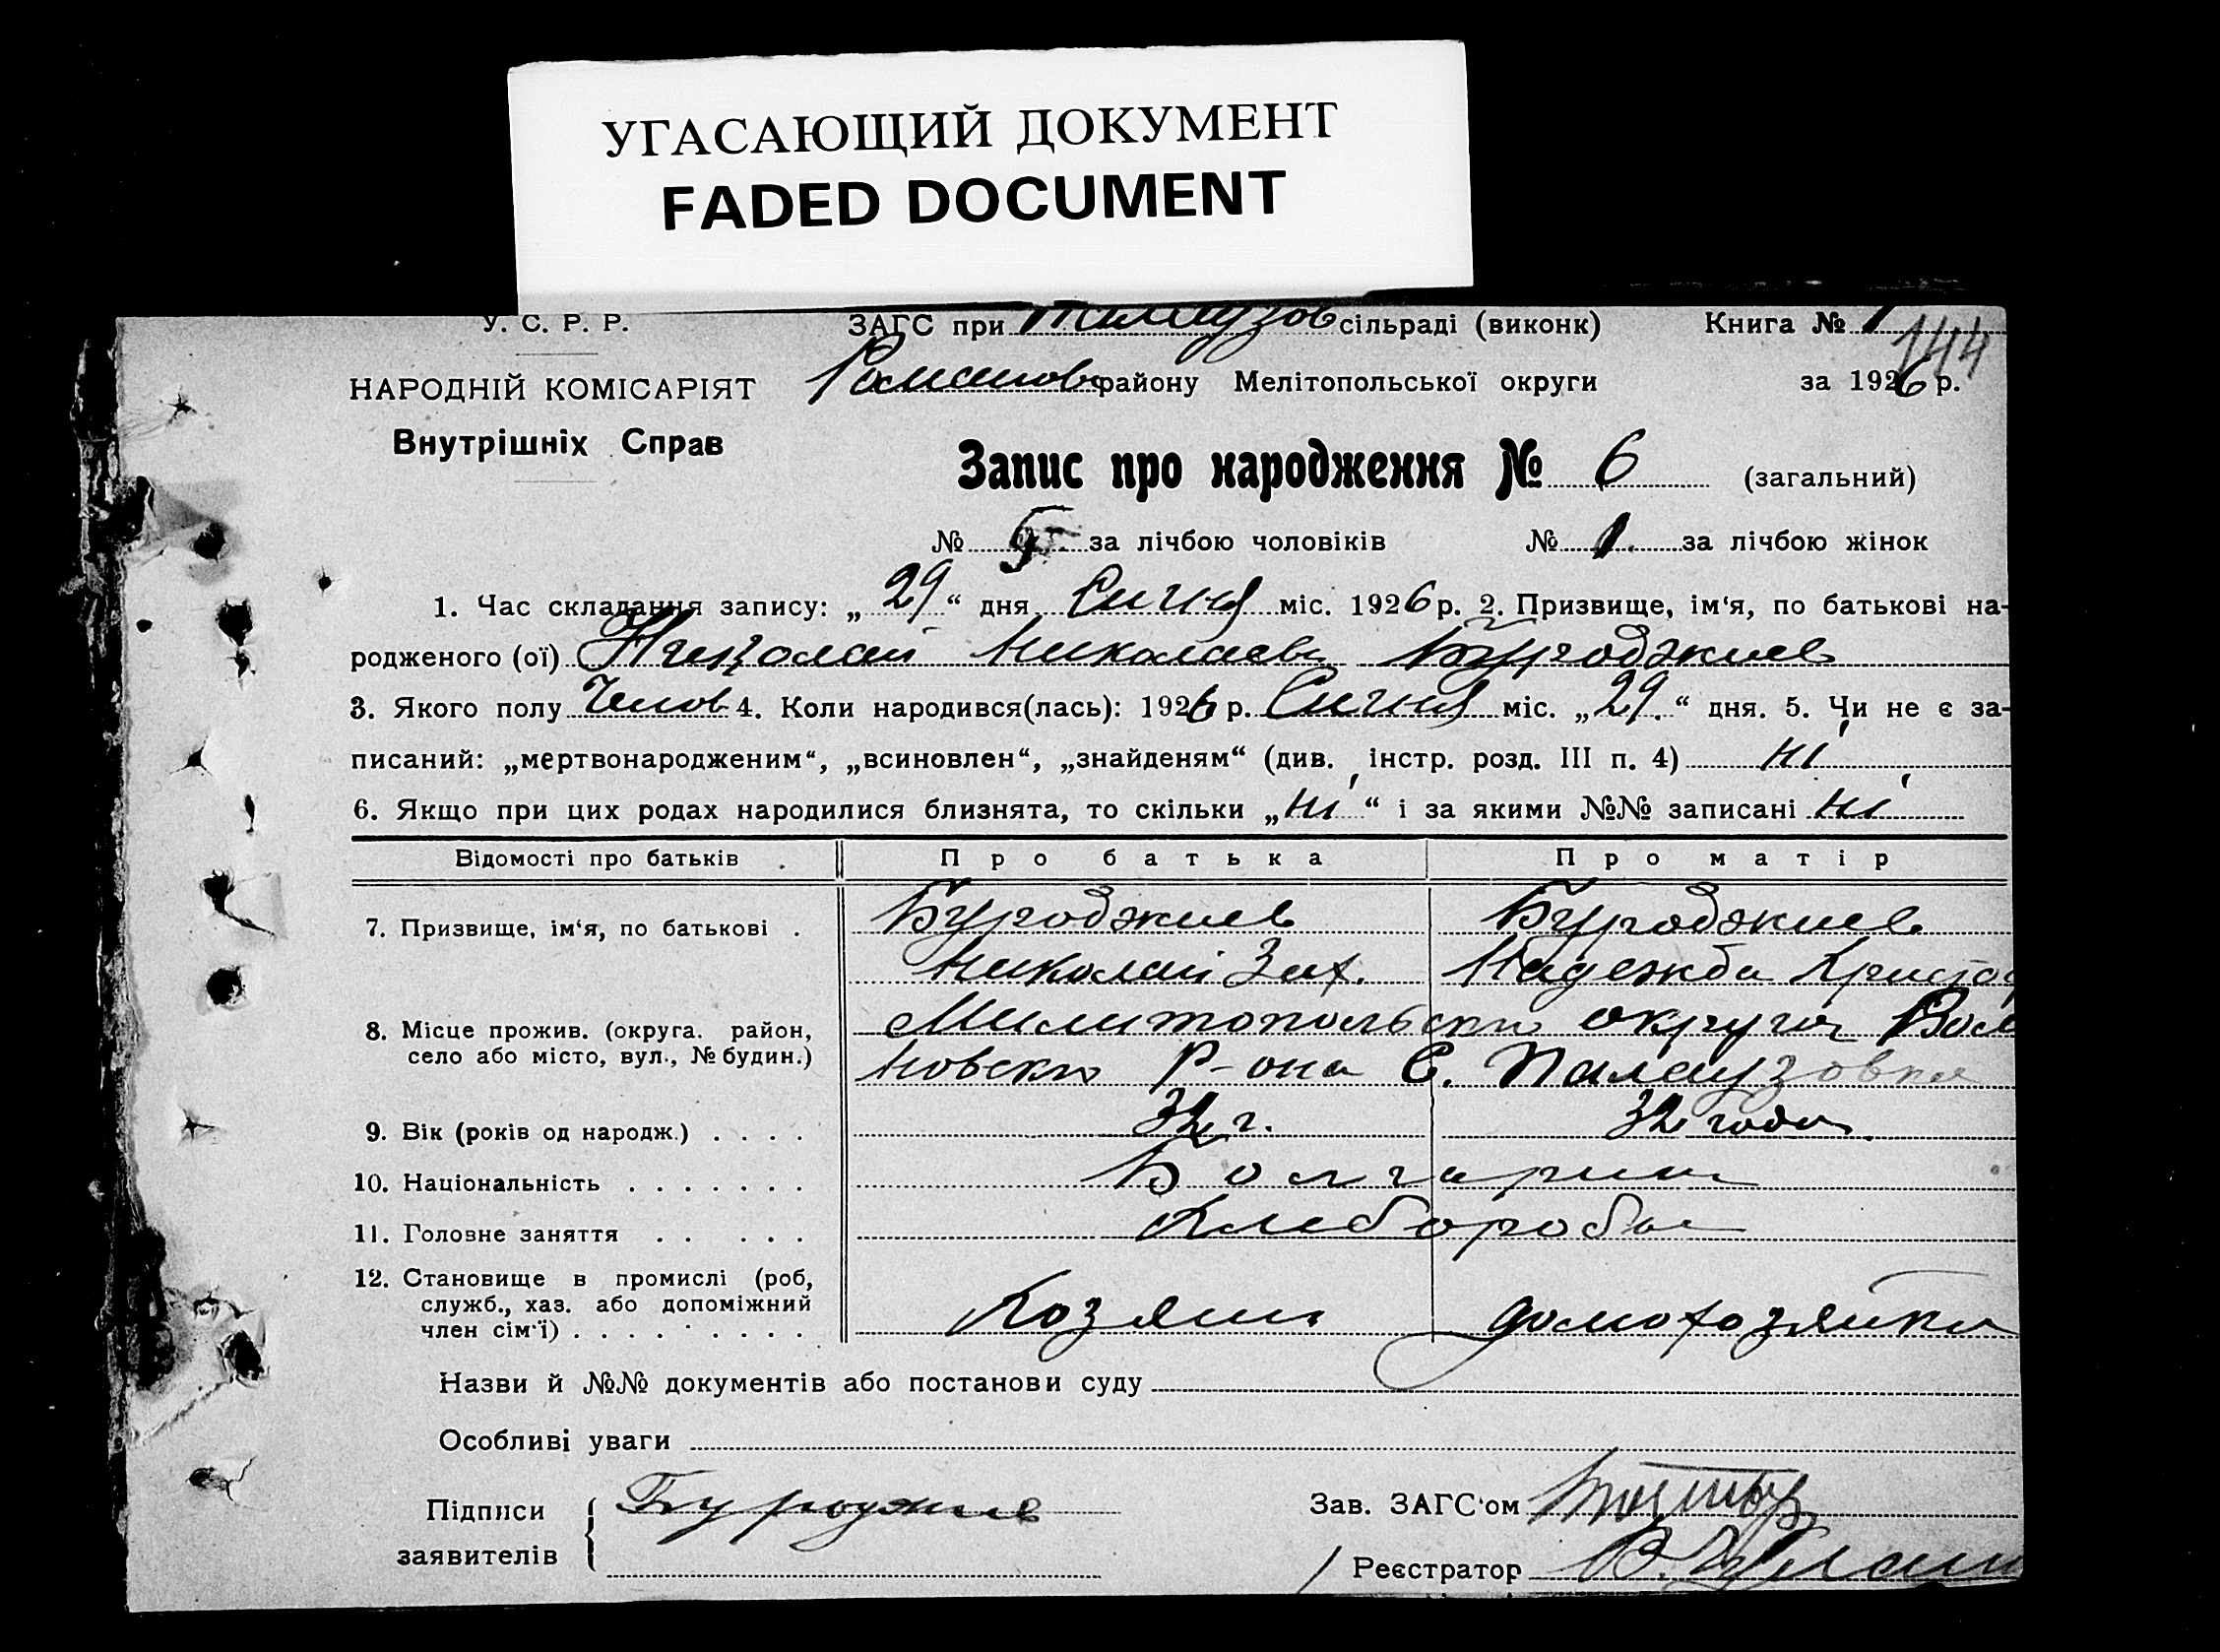 УГАСАЮЩИЙ ДОКУМЕНТ
FADED DOCUMENT
У. С. Р. Р. ЗАГС при Палаузов сільраді (виконк) Книга № 1
144
НАРОДНІЙ КОМІСАРІЯТ Романовс району Мелітопольської округи за 1926 р.
Внутрішніх Справ
Запис про народження № 6 (загальний)
№ 5 за лічбою чоловіків № 1. за лічбою жінок
1. Час складання запису: „29“ дня Сичня міс. 1926 р. 2. Призвище, ім‘я, по батькові на-
родженого (ої) Николай Николаев Буроджиев
3. Якого полу Челов 4. Коли народився(лась): 1926 р. Сичня міс. „29.“ дня. 5. Чи не є за-
писаний: „мертвонародженим“, „всиновлен“, „знайденям“ (див. інстр. розд. III п. 4) ні
6. Якщо при цих родах народилися близнята, то скільки „ні“ і за якими №№ записані ні
Відомості про батьків Про батька Про матір
7. Призвище, ім‘я, по батькові . Буроджиев Буроджиев
Николай Зах. Надежда Христоф
8. Місце прожив. (округа. район, село або місто, вул., № будин.) Милитопольско округа
новско Р-она С. Палаузовка
9. Вік (років од народж.) . . . . 32 г. 32 года
10. Національність . . . . . . . Болгарин
11. Головне заняття . . . . . Хлеборобы
12. Становище в промислі (роб, служб., хаз. або допоміжний член сім‘ї) . . . . . . . . . Хозяин домохозяйка
Назви й №№ документів або постанови суду
Особливі уваги
Підписи заявителів Буроджиев
Зав. ЗАГС‘ом
Реєстратор В.